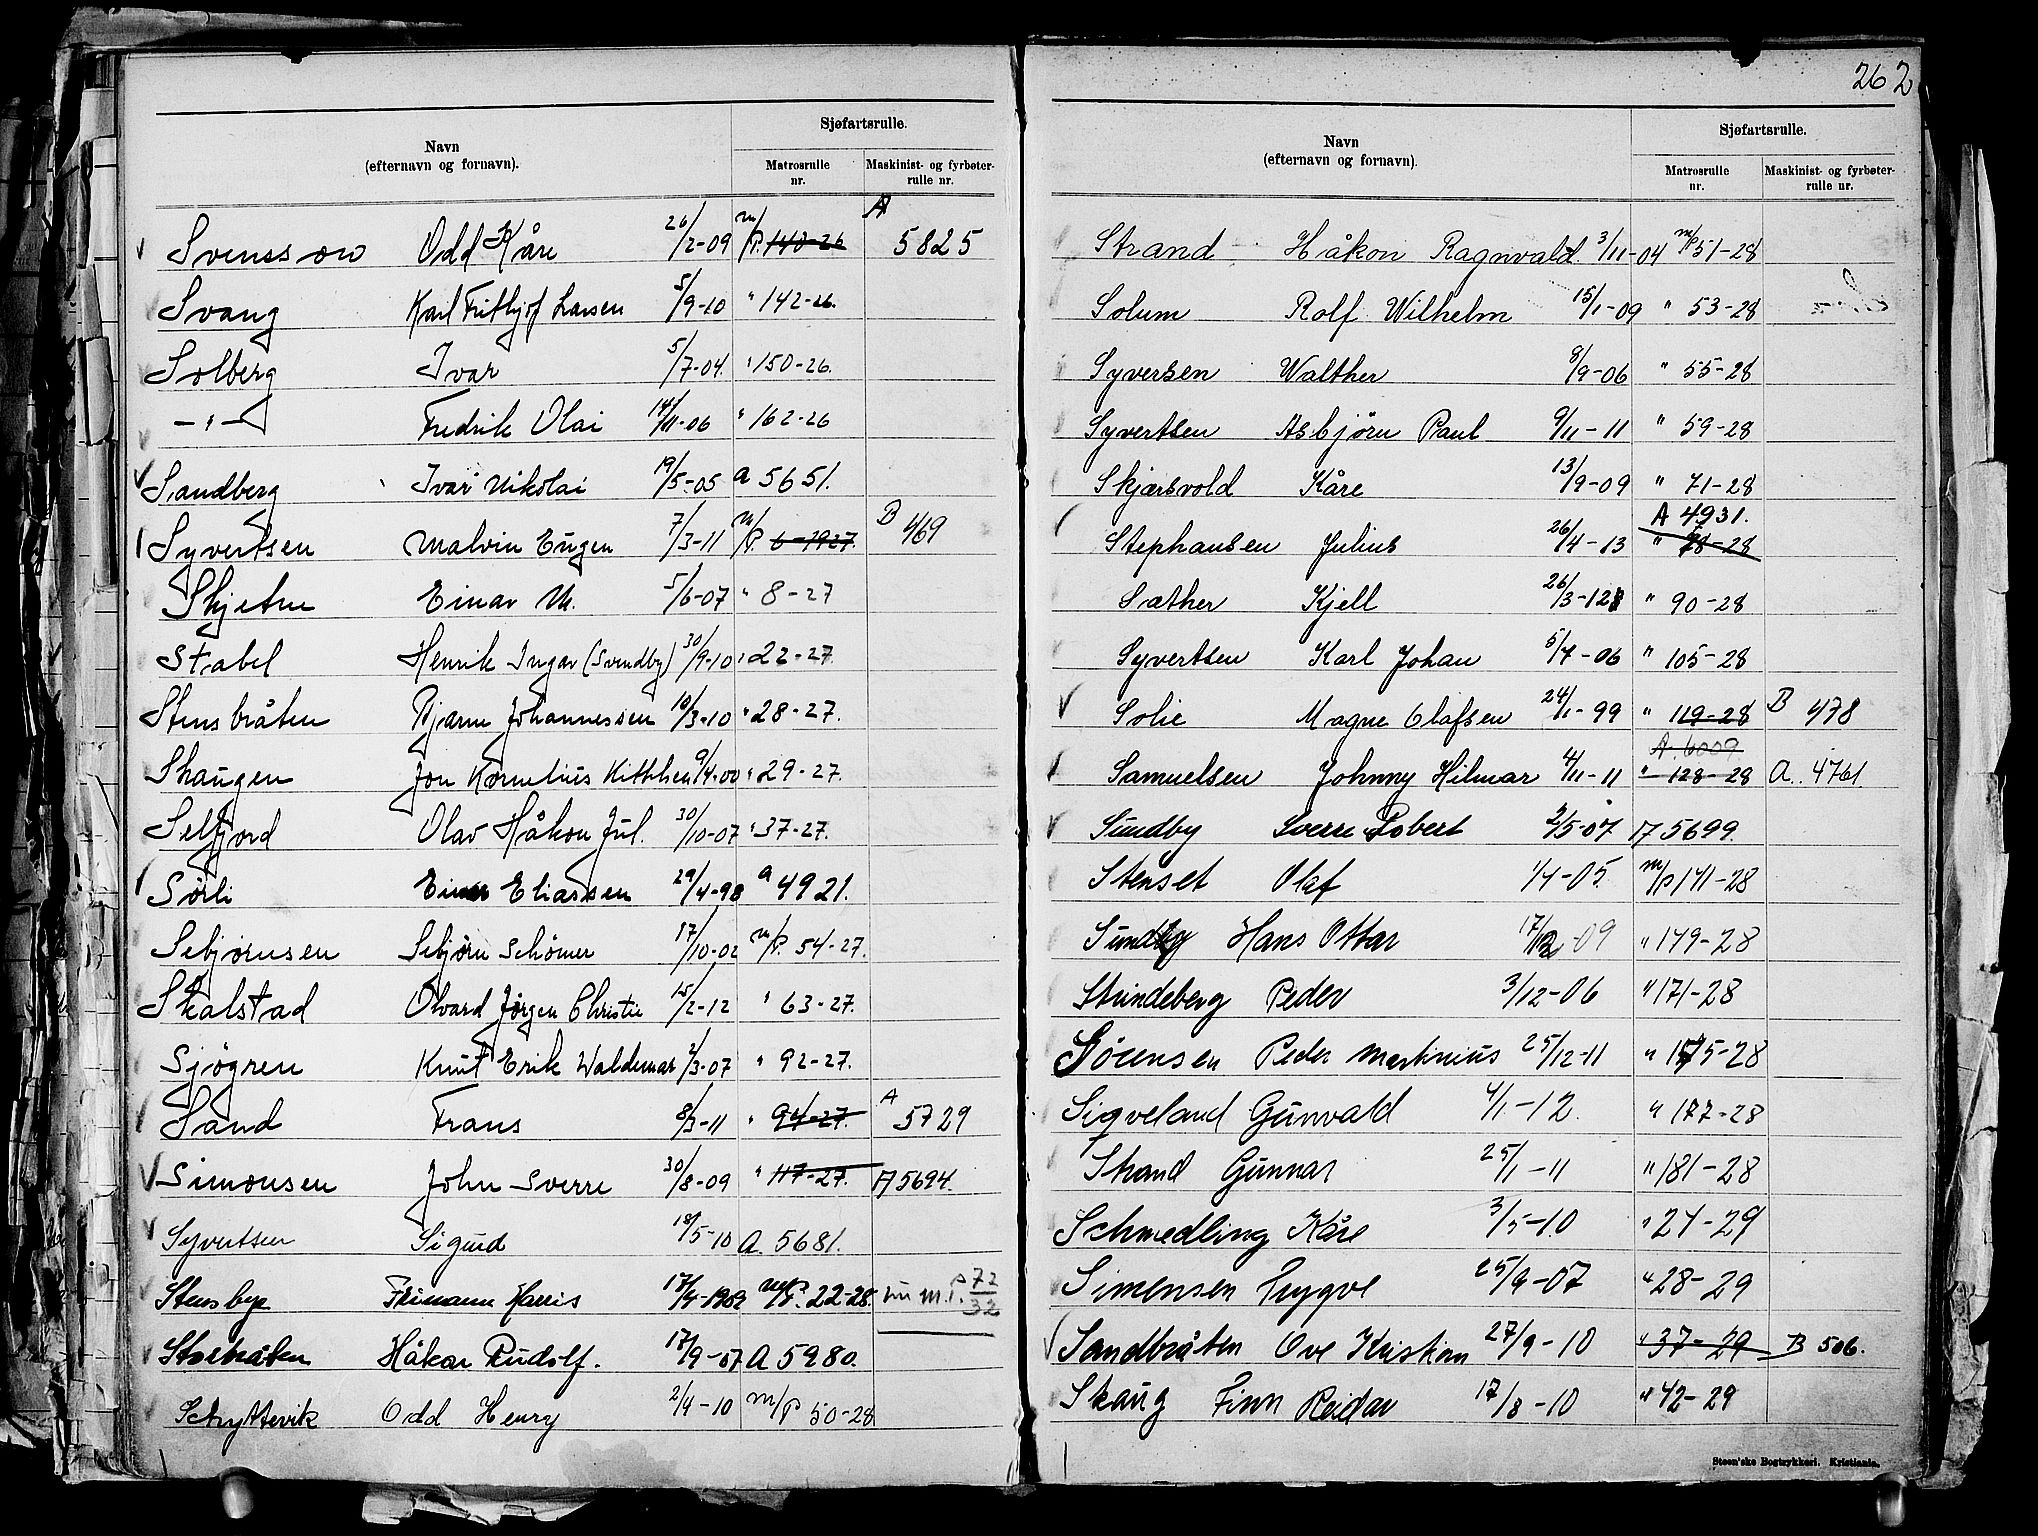 262
Navn
(efternavn og fornavn).
Sjøfartsrulle.
Matrosrulle nr.
Maskinist- og fyrbøter-rulle nr.
Svensson Odd Kåre 26/2-09 m/P. 143-26 A 5825
Svang Karl Frithjof Larsen 5/9-10 " 142-26.
Solberg Ivar 5/7-04. " 150-26.
-"- Fredrik Olai 14/11-06 " 162-26
Sandberg Ivar Nikolai 19/5-05 a 5651.
Syvertsen Malvin Eugen 7/3-11 m/P. 6-1927. B 469
Skjetne Einar M. 5/6-07 " 8-27
Stabel Henrik Ingar (Svendby) 30/9-10 " 22-27.
Stensbråten Bjarne Johannessen 10/3-10 " 28-27.
Skaugen Jon Kornelius 9/4-00 " 29-27.
Selfjord Olav Håkon Jul. 30/10-07 " 37-27.
Sørli Einar Eliassen 29/4-98 a 4921.
Sebjørnsen Sebjørn Schömer 17/10-02 m/P. 54-27.
Skalstad Olvard Jørgen Christie 15/2-12 " 63-27.
Sjögren Knut Erik Waldemar 2/3-07 " 92-27.
Sand Frans 8/3-11 " 94-27. A 5729
Simonsen John Sverre 30/8-09 " 117-27. A 5694.
Syvertsen Sigurd 18/5-10 A. 5681.
Stensbye Frimann Harris 17/4-1909 m/P. 22-28. nu m.P. 72/32
Storbråten Håkar Rudolf. 17/9-07 A 5980.
Schyttevik Odd Henry 2/4-10 m/P 50-28
Navn
(efternavn og fornavn).
Sjøfartsrulle.
Matrosrulle nr.
Maskinist- og fyrbøter-rulle nr.
Strand Håkon Ragnvald 3/11-04 m/P 51-28
Solum Rolf Wilhelm 15/1-09 " 53-28
Syversen Walther 8/9-06 " 55-28
Syvertsen Asbjørn Paul 9/11-11 " 59-28
Skjærsvold Kåre 13/9-09 " 71-28
A 4931.
Stephansen Julius 26/4-13 " 78-28
Sæther Kjell 26/3-12 " 90-28
Syvertsen Karl Johan 5/7-06 " 105-28
Solie Magne Olafsen 24/11-99 " 119-28 B 478
A. 6009
Samuelsen Johnny Hilmar 4/11-11 " 128-28 A. 4761
Sundby Sverre Robert 2/5-07 A 5699.
Stenset Olaf 1/4-05. m/P 141-28
Sundby Hans Ottar 17/12-09 " 149-28
Strindeberg Peder 3/12-06 " 171-28
Sörensen Peder Martinius 25/12-11 " 175-28
Sigveland Gunvald 4/1-12. " 177-28
Strand Gunnar 25/1-11 " 181-28
Schmedling Kåre 3/5-10 " 24-29
Simensen Trygve 25/9-07 " 28-29
Sandbråten Ove Kristian 27/9-10 " 37-29 B 506.
Skaug Finn Reidar 17/8-10 " 42-29
Steen'ske Bogtrykkeri. Kristiania.